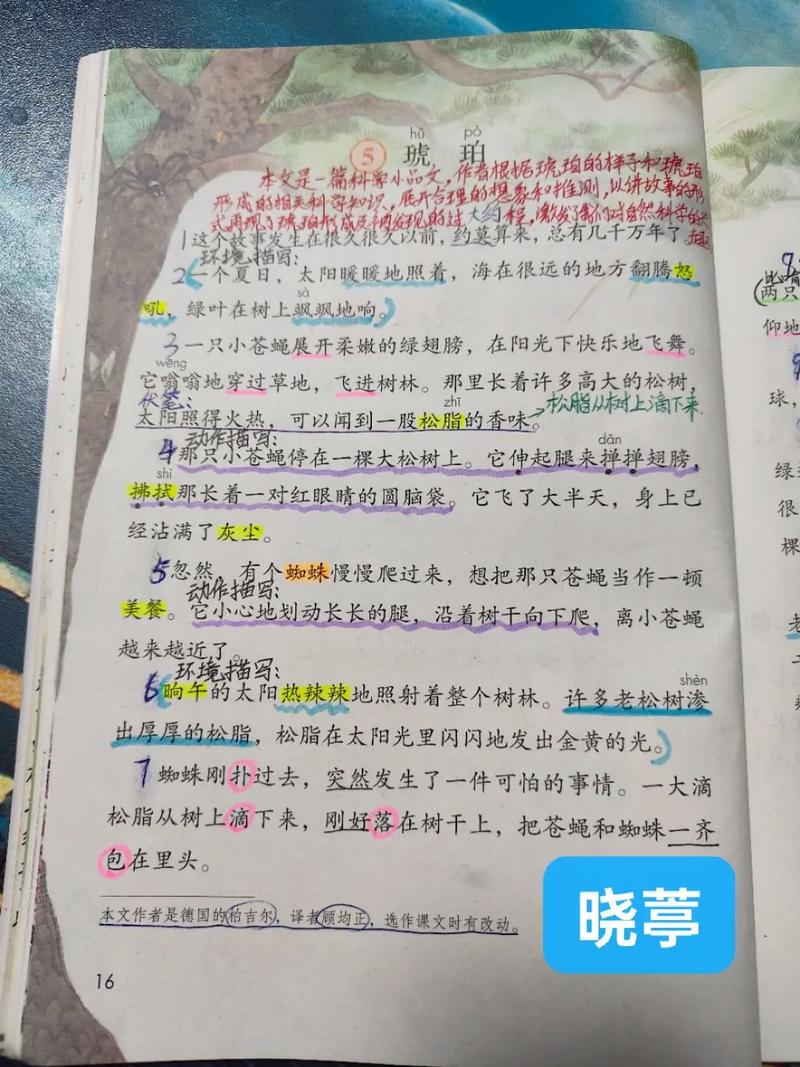 hǔ pò
⑤ 琥 珀
本文是一篇科学小品文，作者根据琥珀的样子和琥珀
形成的相关科学知识，展开合理的想象和推测，以讲故事的形
式再现了琥珀形成及被发现的过程，激发了我们对自然科学的兴趣
大约
1这个故事发生在很久很久以前，约莫算来，总有几千万年了。
环境描写：
2一个夏日，太阳暖暖地照着，海在很远的地方翻腾怒
sà
吼，绿叶在树上飒飒地响。
3一只小苍蝇展开柔嫩的绿翅膀，在阳光下快乐地飞舞。
wēng
它嗡嗡地穿过草地，飞进树林。那里长着许多高大的松树，
伏笔：
zhī
太阳照得火热，可以闻到一股松脂的香味。
松脂从树上滴下来
动作描写：
dǎn
4那只小苍蝇停在一棵大松树上。它伸起腿来掸掸翅膀，
shì
拂拭那长着一对红眼睛的圆脑袋。它飞了大半天，身上已
经沾满了灰尘。
5忽然，有个蜘蛛慢慢爬过来，想把那只苍蝇当作一顿
动作描写：
美餐。它小心地划动长长的腿，沿着树干向下爬，离小苍蝇
越来越近了。
环境描写：
shèn
6晌午的太阳热辣辣地照射着整个树林。许多老松树渗
出厚厚的松脂，松脂在太阳光里闪闪地发出金黄的光。
7蜘蛛刚扑过去，突然发生了一件可怕的事情。一大滴
松脂从树上滴下来，刚好落在树干上，把苍蝇和蜘蛛一齐
包在里头。
本文作者是德国的柏吉尔，译者顾均正，选作课文时有改动。
16
两只
仰地
球，
很
棵
晓葶